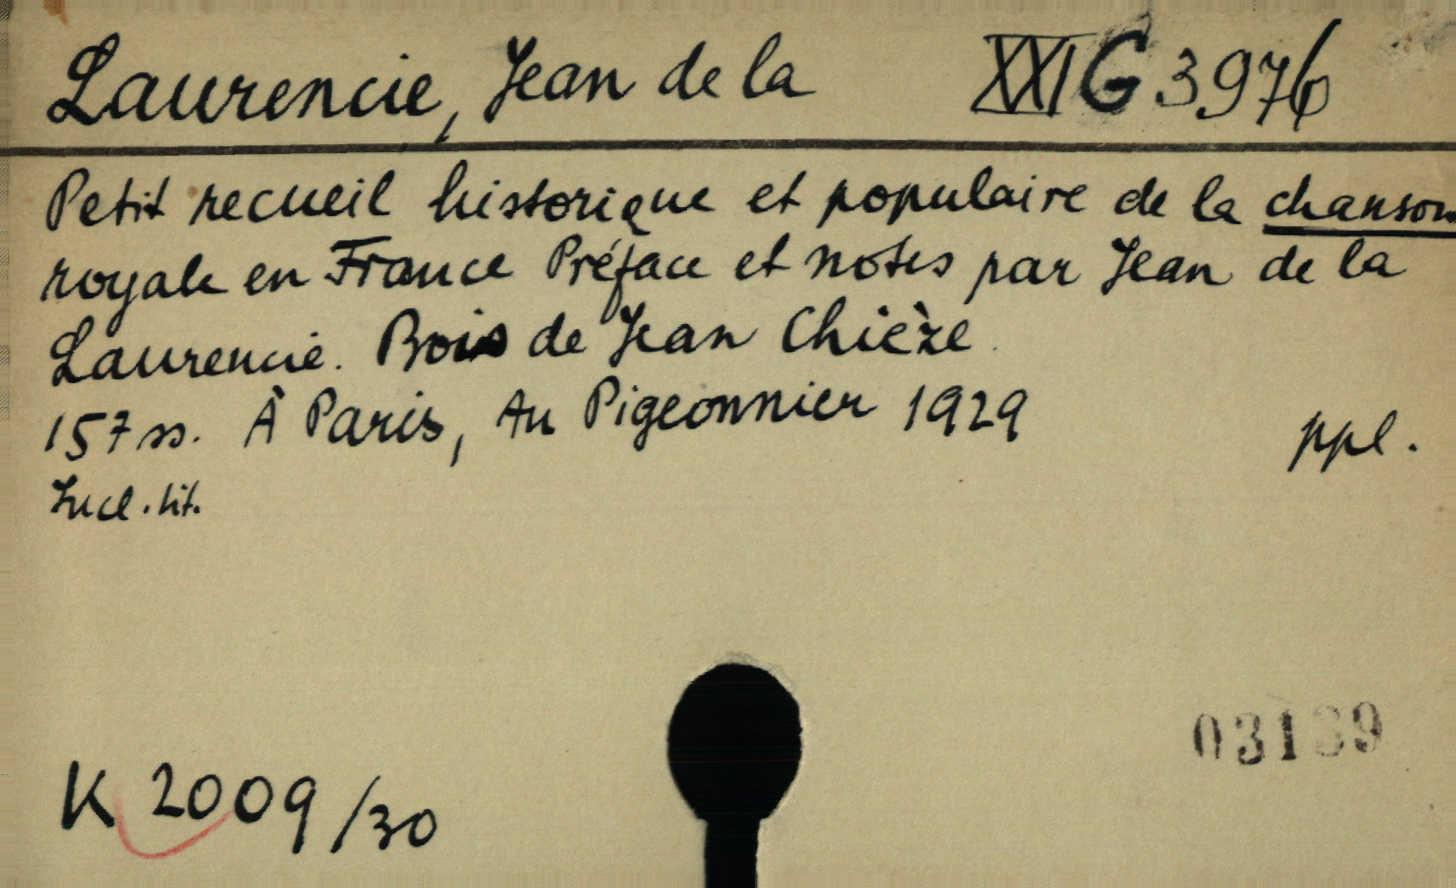 Laurencie, Jean de la XXI G 3976
Petit recueil historique et populaire de la chanson
royale en France Préface et notes par Jean de la
Laurencie. Bois de Jean Chièze
157 ss. À Paris, Au Pigeonnier 1929
ppl.
Incl. tit.
K 2009/30